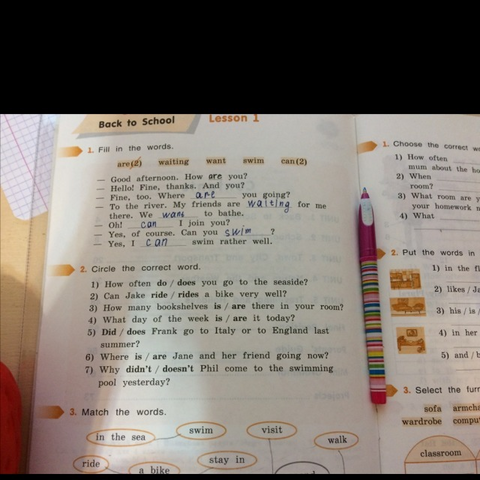 Back to School
Lesson 1
1. Fill in the words.
are(2) waiting want swim can(2)
— Good afternoon. How are you?
— Hello! Fine, thanks. And you?
— Fine, too. Where are you going?
— To the river. My friends are waiting for me
there. We want to bathe.
— Oh! can I join you?
— Yes, of course. Can you swim ?
— Yes, I can swim rather well.
2. Circle the correct word.
1) How often do / does you go to the seaside?
2) Can Jake ride / rides a bike very well?
3) How many bookshelves is / are there in your room?
4) What day of the week is / are it today?
5) Did / does Frank go to Italy or to England last
summer?
6) Where is / are Jane and her friend going now?
7) Why didn't / doesn't Phil come to the swimming
pool yesterday?
3. Match the words.
in the sea
swim
visit
walk
ride
a bike
stay in
1. Choose the correct
1) How often
mum about the
2) When
room?
3) What room are
your homework
4) What
2. Put the words in
1) in the
2) likes /
3) his / is
4) in her
5) and /
3. Select the
sofa
wardrobe
classroom